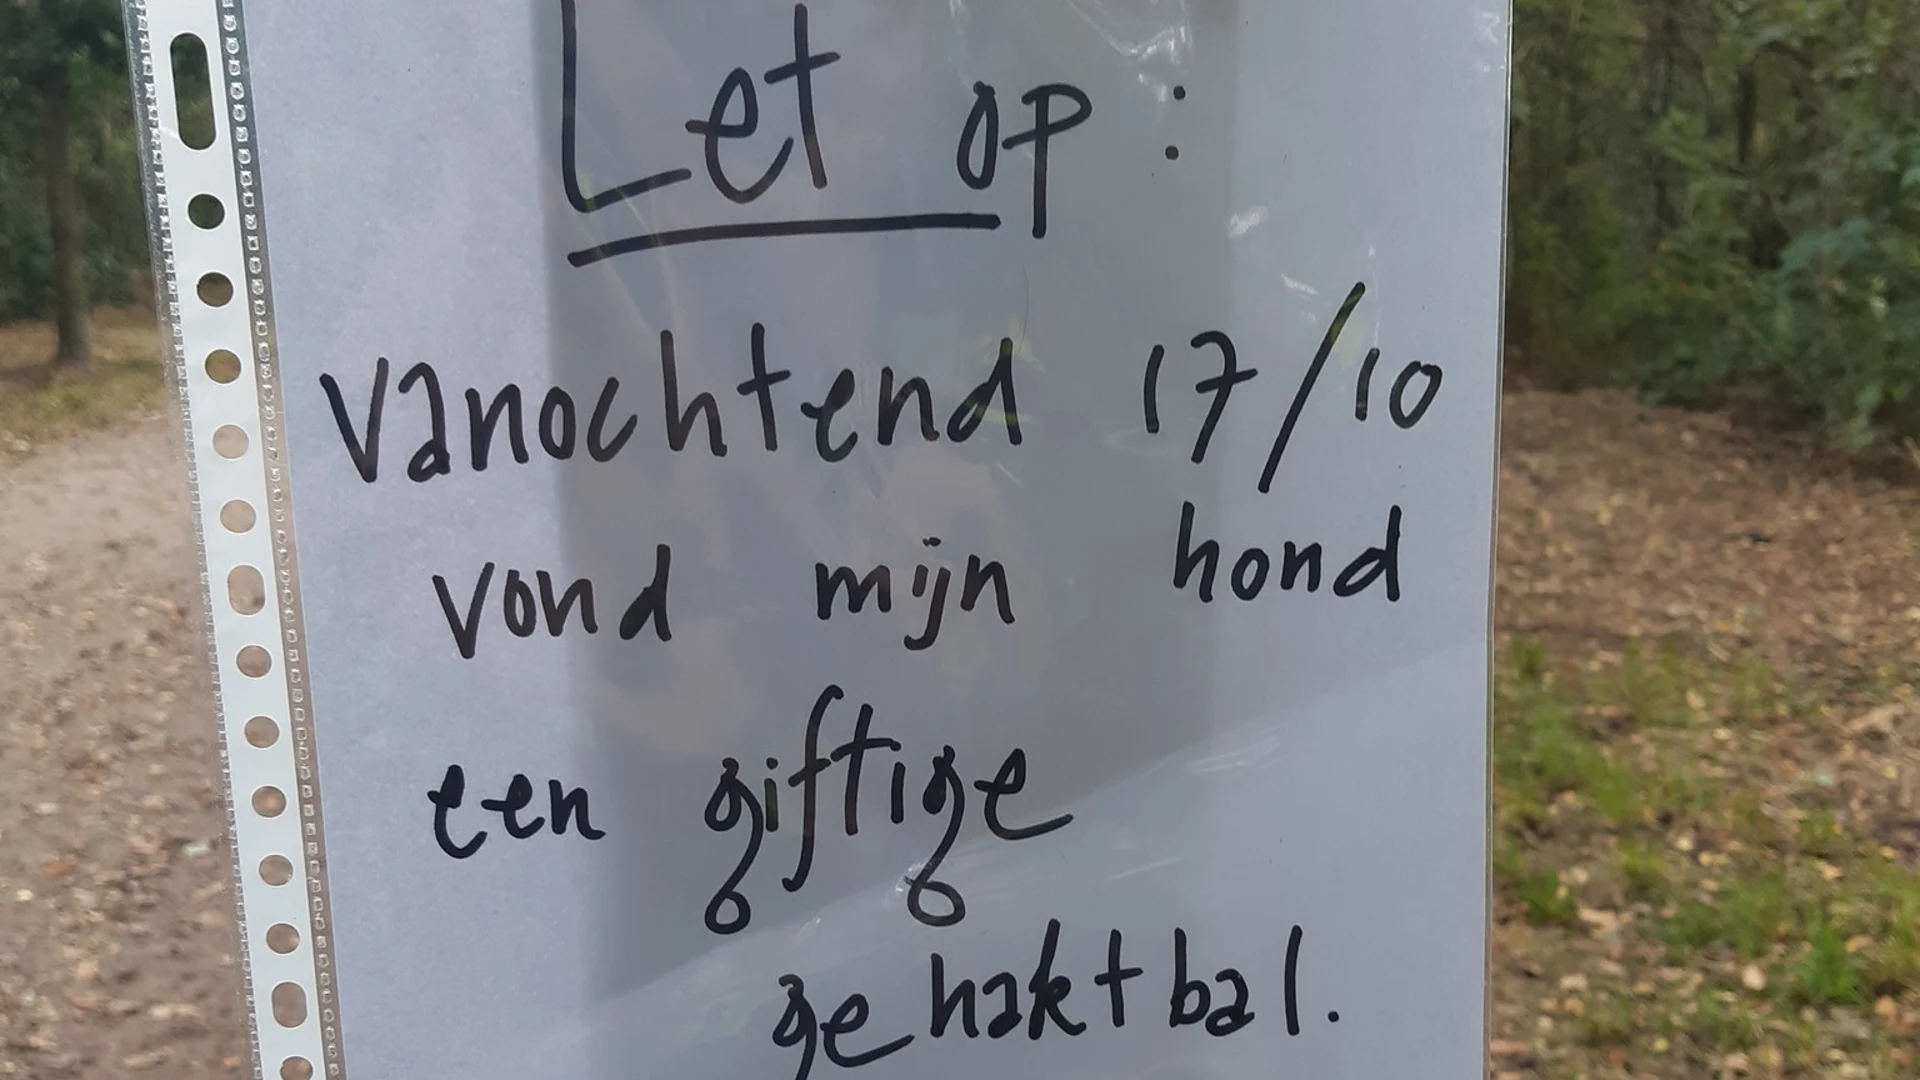 Let op:
vanochtend 17/10
vond mijn hond
een giftige
gehaktbal.